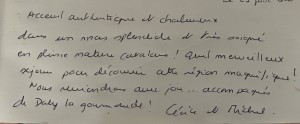 Accueil authentique et chaleureux
dans un mas splendide et très soigné
en pleine nature ! Quel merveilleux
séjour pour découvrir cette région magnifique !
Nous reviendrons avec joie ... accompagnés
de Daly la gourmande !
Cécile et Michel